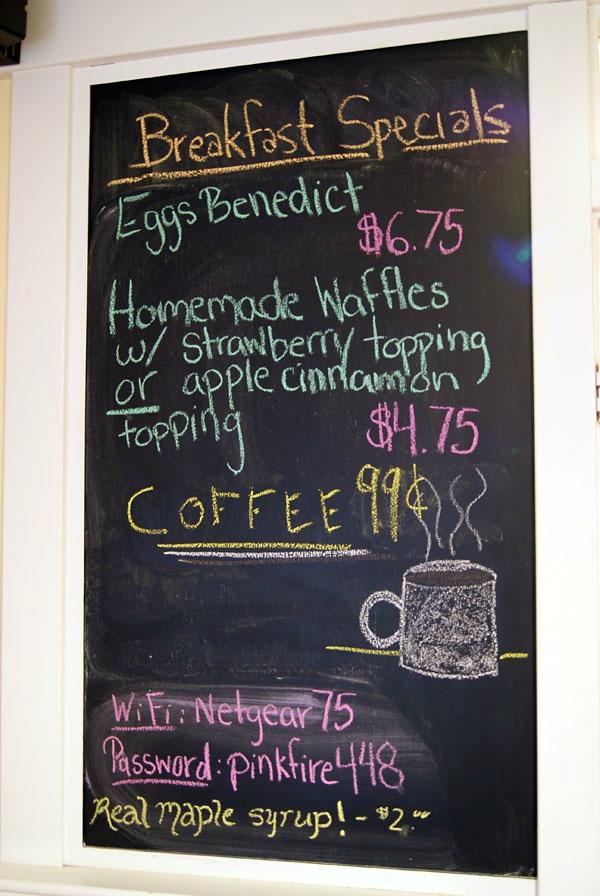 Breakfast Specials
Eggs Benedict
$6.75
Homemade Waffles
w/ strawberry topping
or apple cinnamon
topping
$4.75
COFFEE 99¢
WiFi: Netgear75
Password: pinkfire448
Real maple syrup! - $2.00